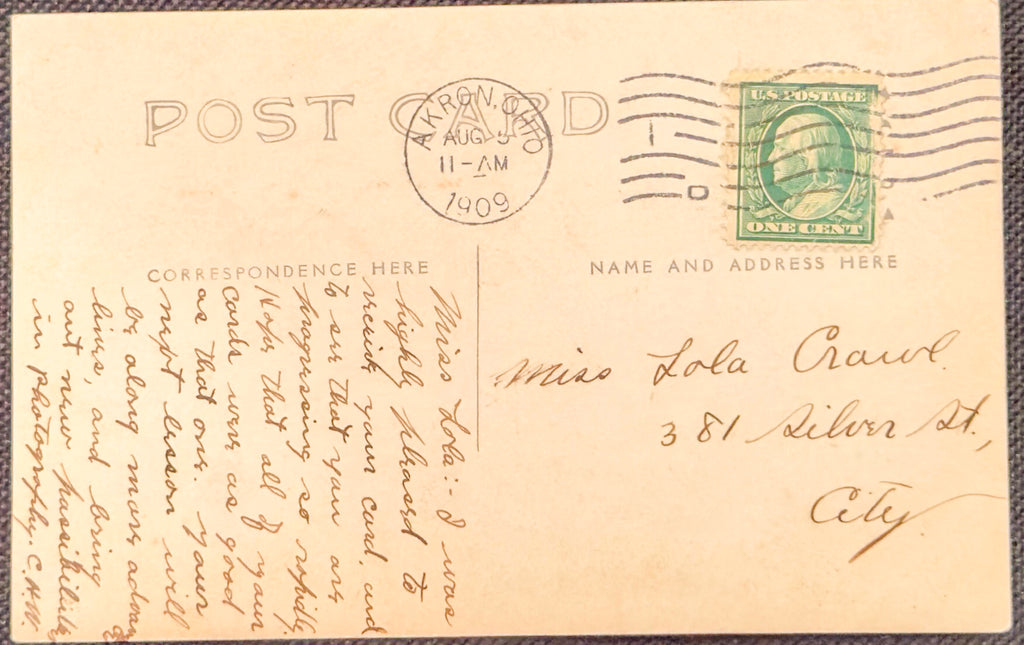 POST CARD
AKRON, OHIO
AUG 5
11-AM
1909
1
D
U.S. POSTAGE
ONE CENT
CORRESPONDENCE HERE
NAME AND ADDRESS HERE
Miss Lola:- I was
highly pleased to
receive your card, and
to see that you are
progressing so rapidly.
Hope that all of your
cards were as good
as that one. Your
next lesson will
be along more
lines, and bring
out new possibilities
in photography. C.H.W.
Miss Lola Crawl
381 Silver St.,
City